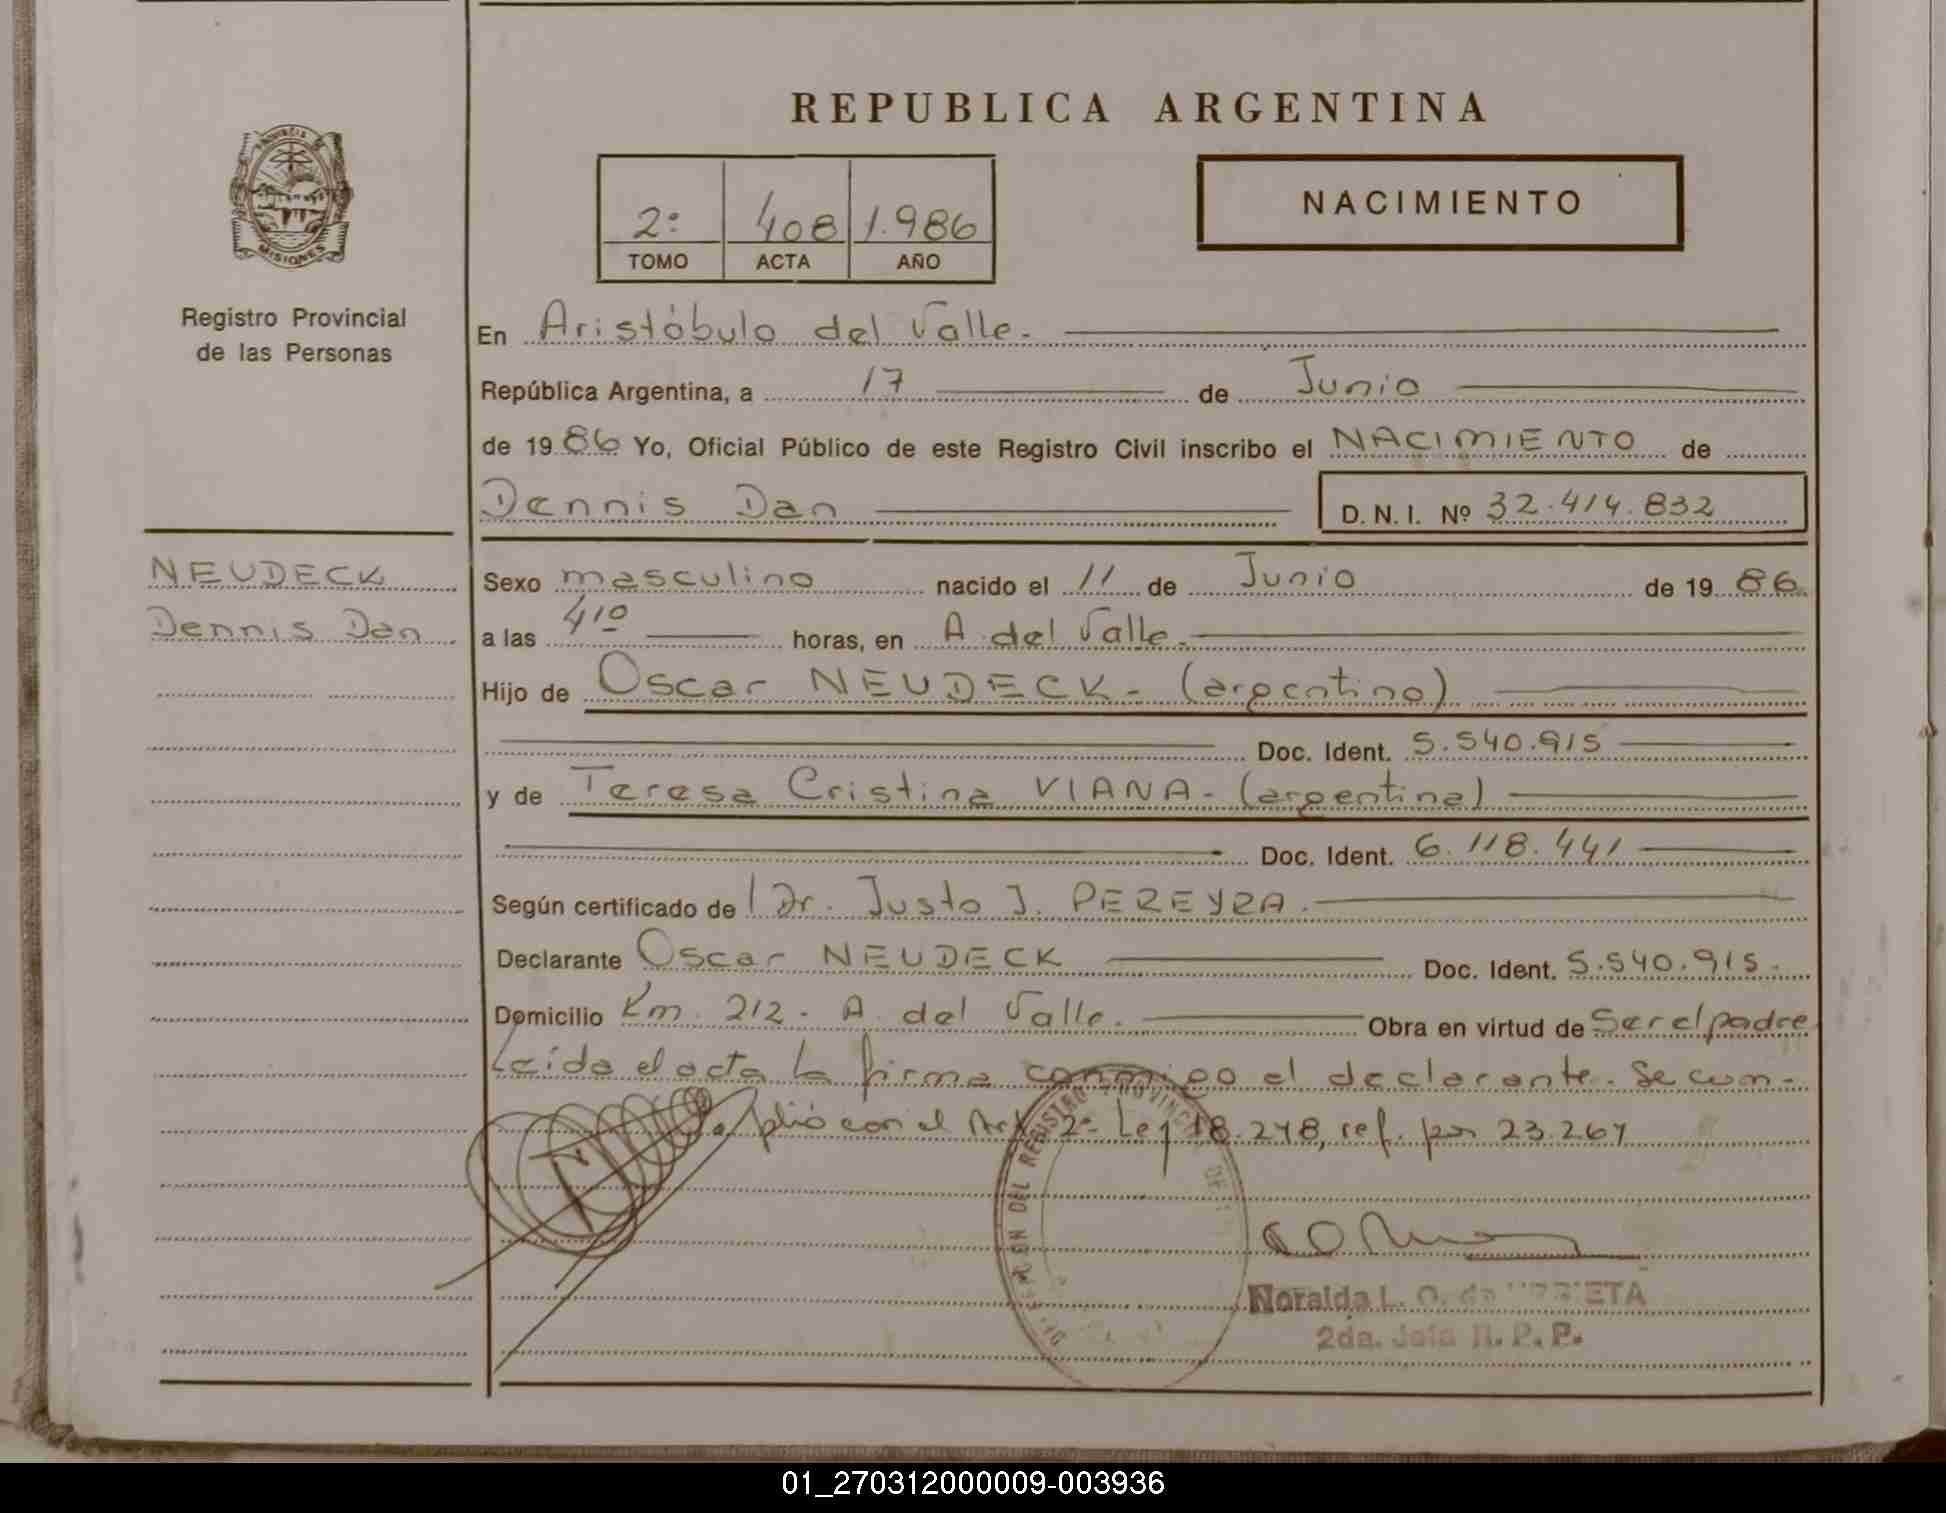 REPUBLICA ARGENTINA
PROVINCIA DE
MISIONES
Registro Provincial
de las Personas
2º 408 1.986
TOMO ACTA AÑO
NACIMIENTO
En Aristóbulo del Valle.
República Argentina, a 17 de Junio
de 19 86 Yo, Oficial Público de este Registro Civil inscribo el NACIMIENTO de
Dennis Dan D. N. I. Nº 32.414.832
NEUDECK
Dennis Dan
Sexo masculino nacido el 11 de Junio de 19 86
a las 4 10 horas, en A. del Valle.
Hijo de Oscar NEUDECK - (argentino)
Doc. Ident. 5.540.915
y de Teresa Cristina VIANA - (argentina)
Doc. Ident. 6.118.441
Según certificado de Dr. Justo J. PEREYRA.
Declarante Oscar NEUDECK Doc. Ident. 5.540.915.
Domicilio Km. 212 - A. del Valle. Obra en virtud de Ser el padre
Leída el acta la firma conmigo el declarante. Se cum-
plió con el Art. 2º Ley 18.248, ref. por 23.264
DEL REGISTRO PROVINCIAL DE
Noralda L. O. de URRIETA
2da. Jefa R. P. P.
01_270312000009-003936